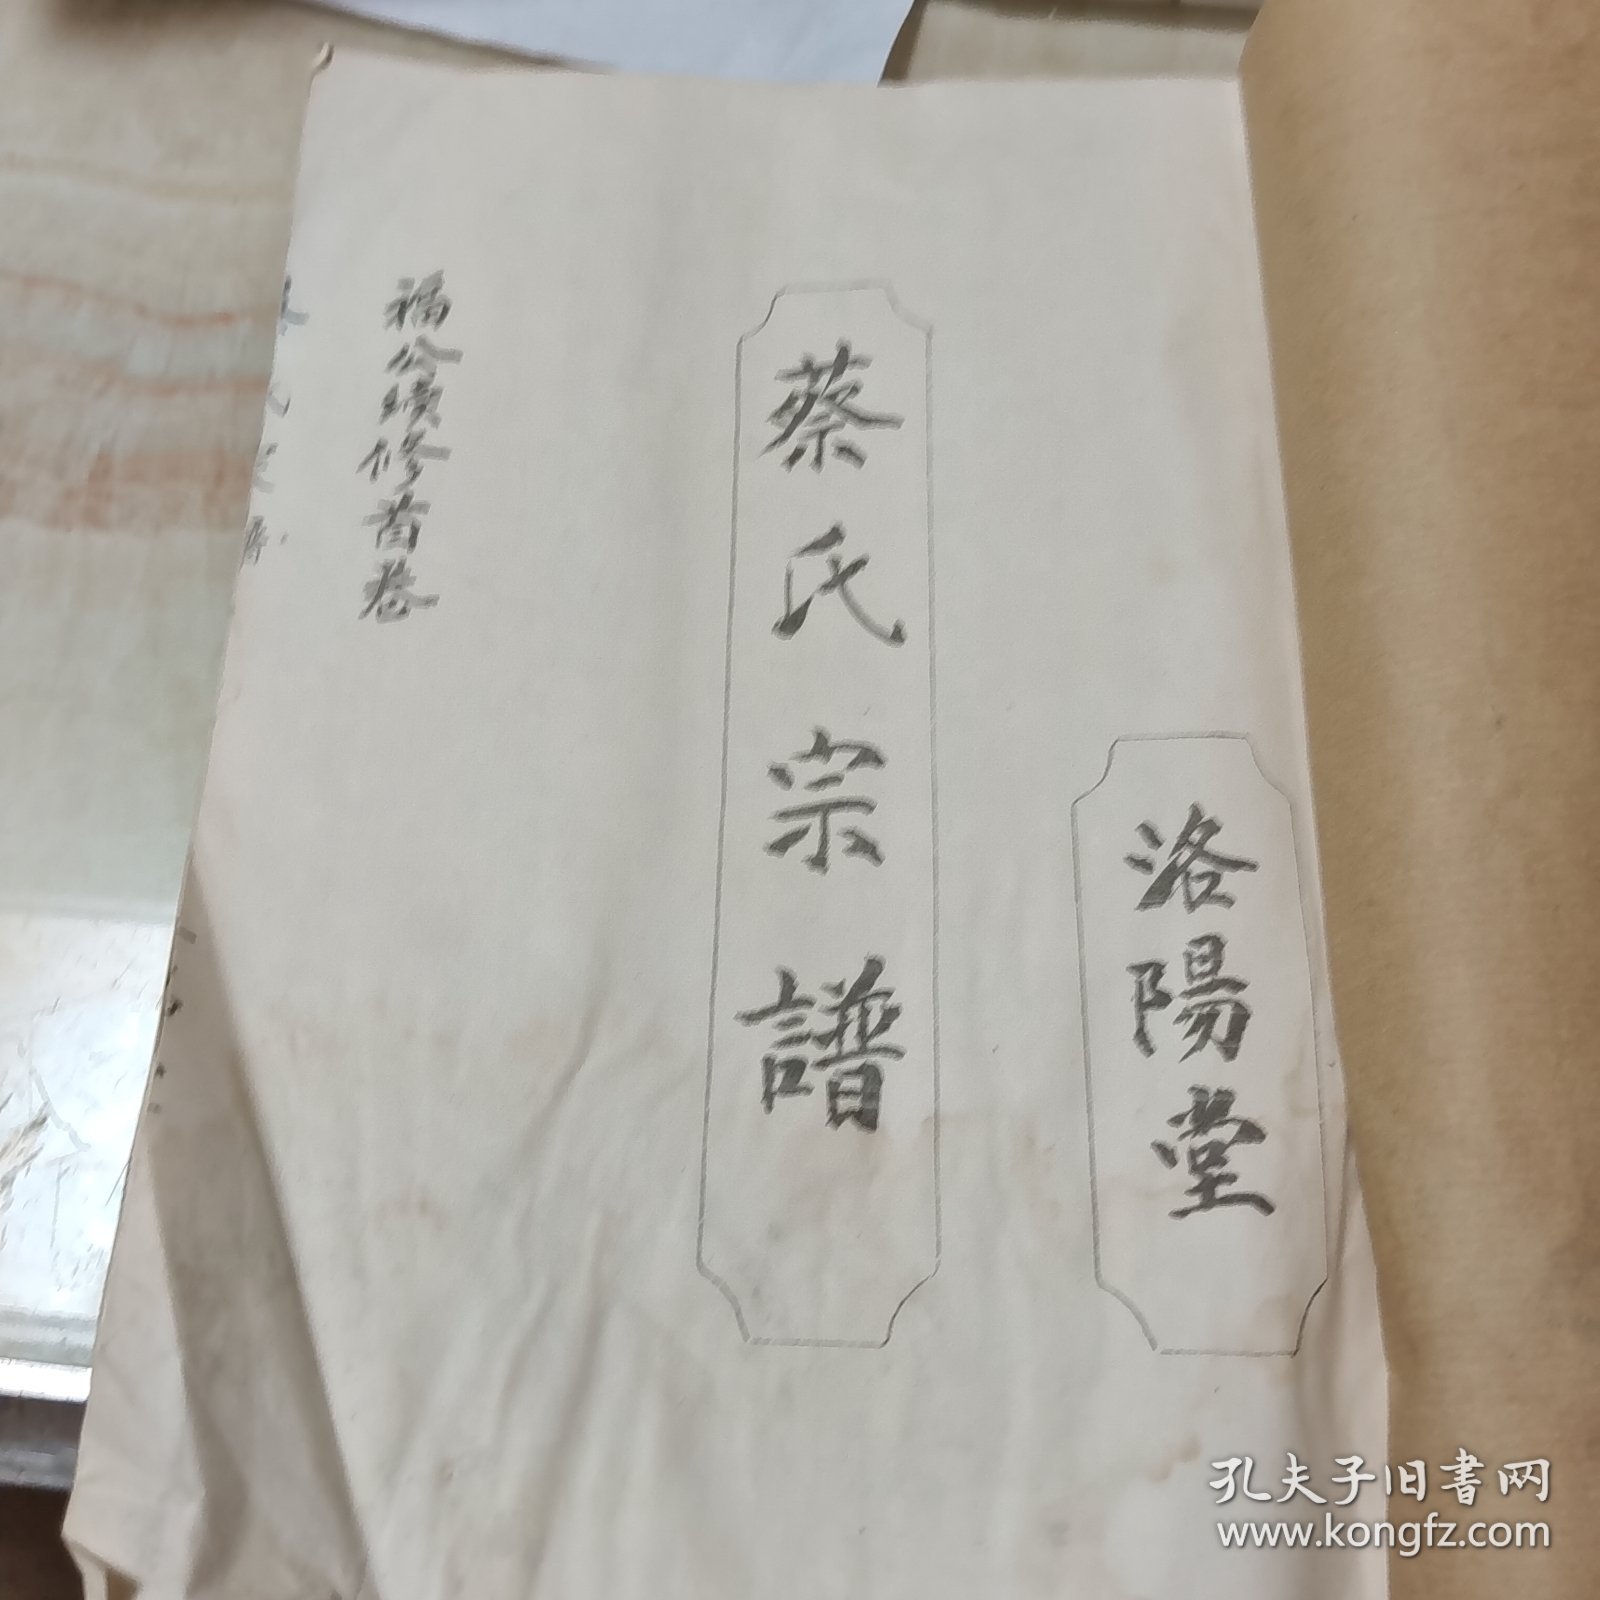 洛陽堂
蔡氏宗譜
福公續修首卷
孔夫子旧书网
www.kongfz.com